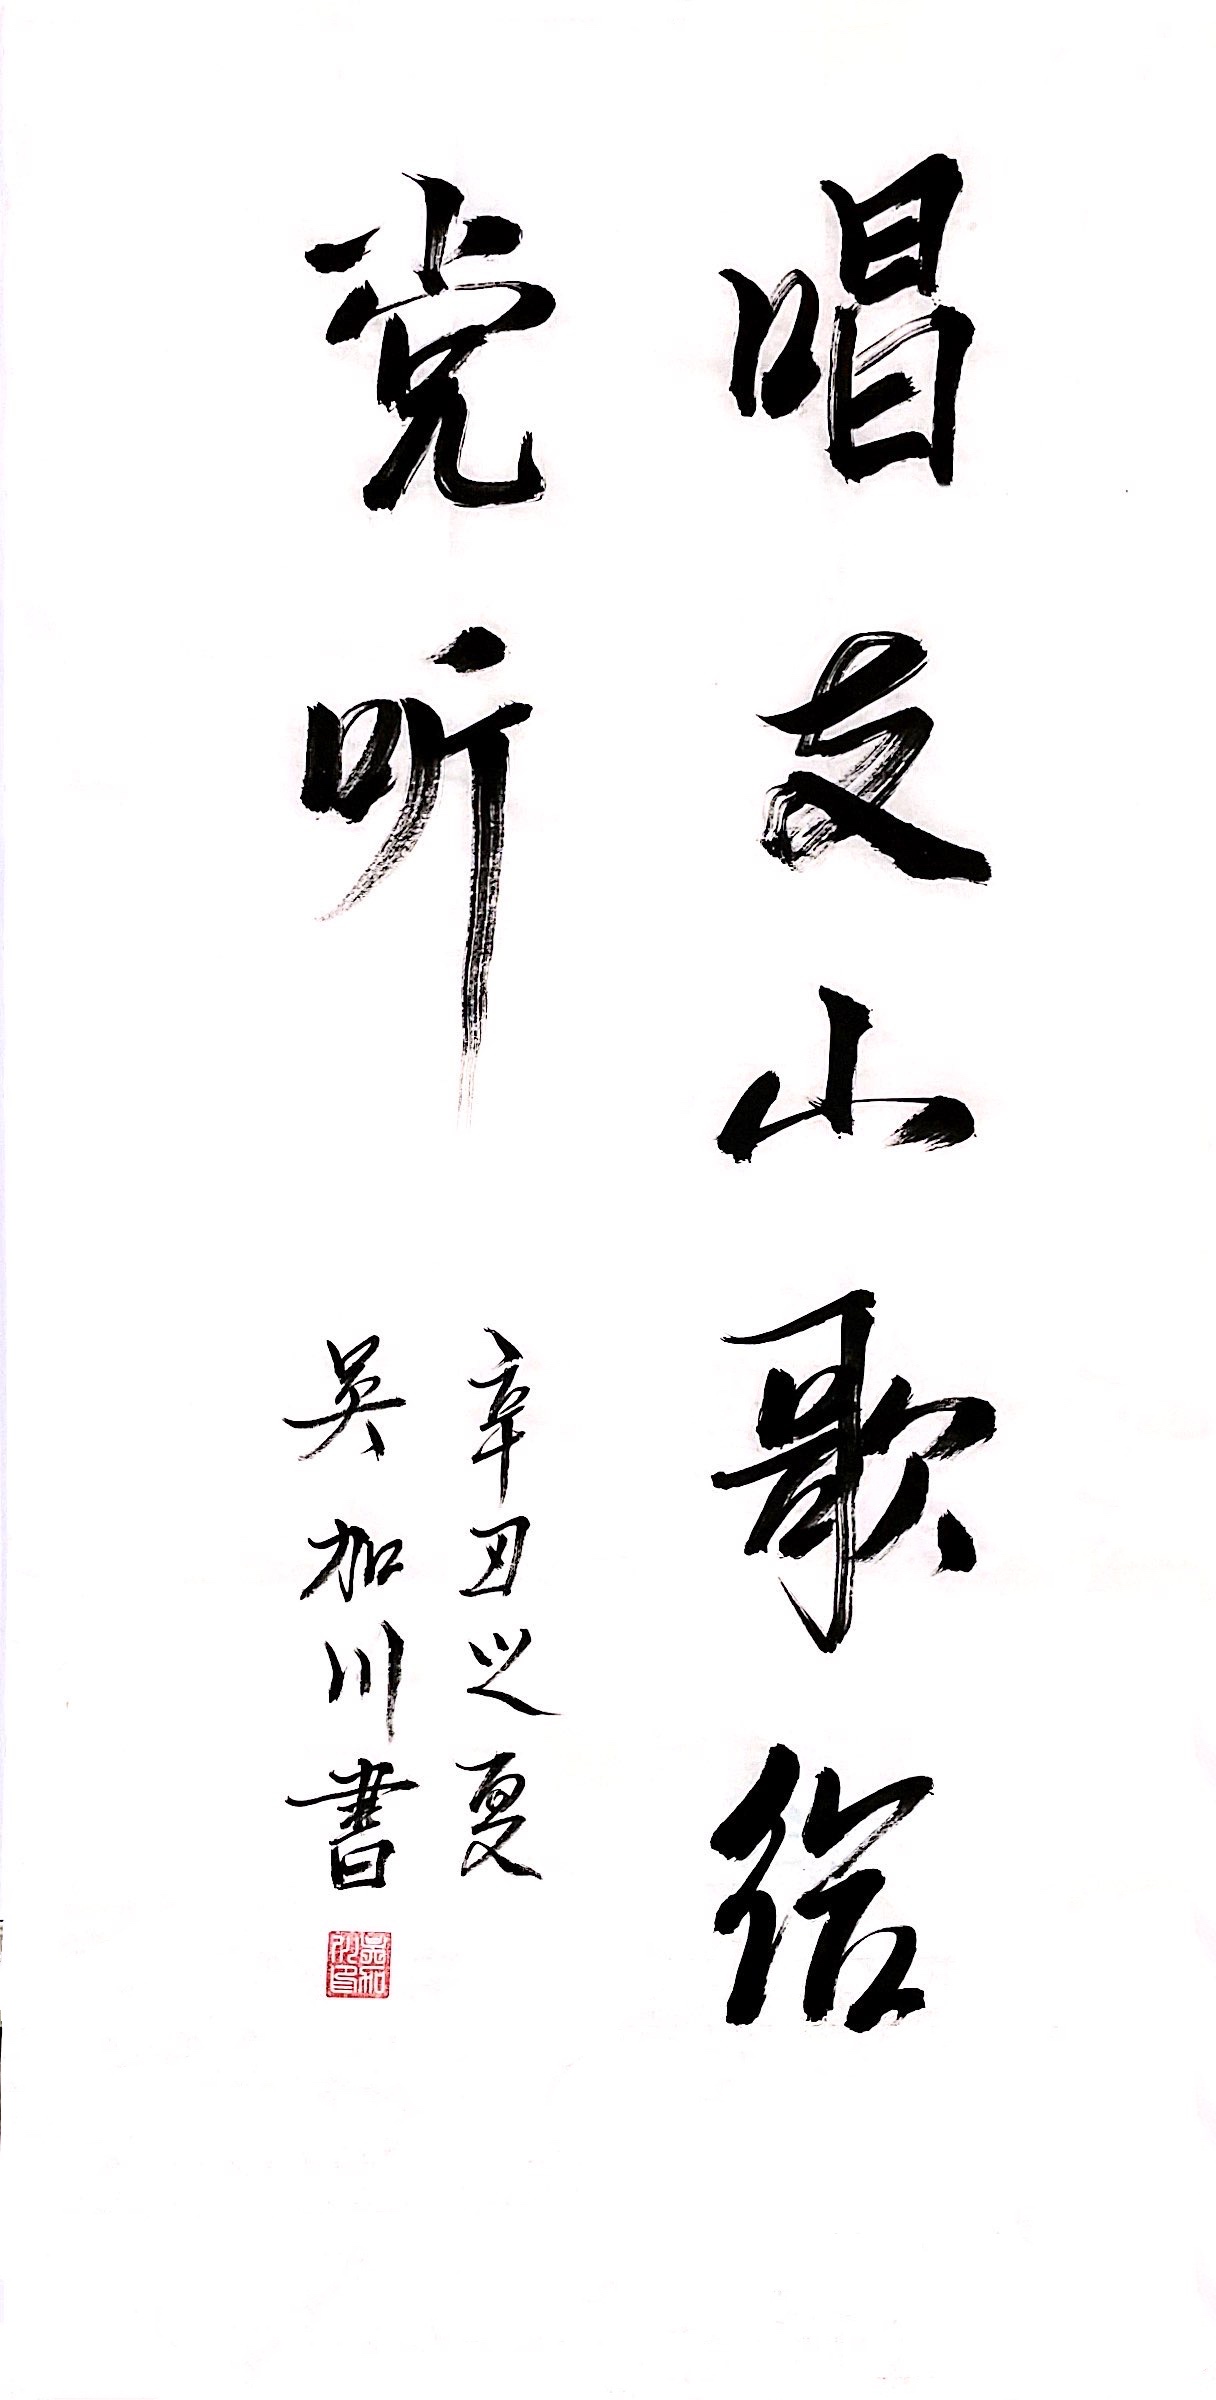 唱支山歌给
党听
辛丑之夏
吴加川書
吴加
川印